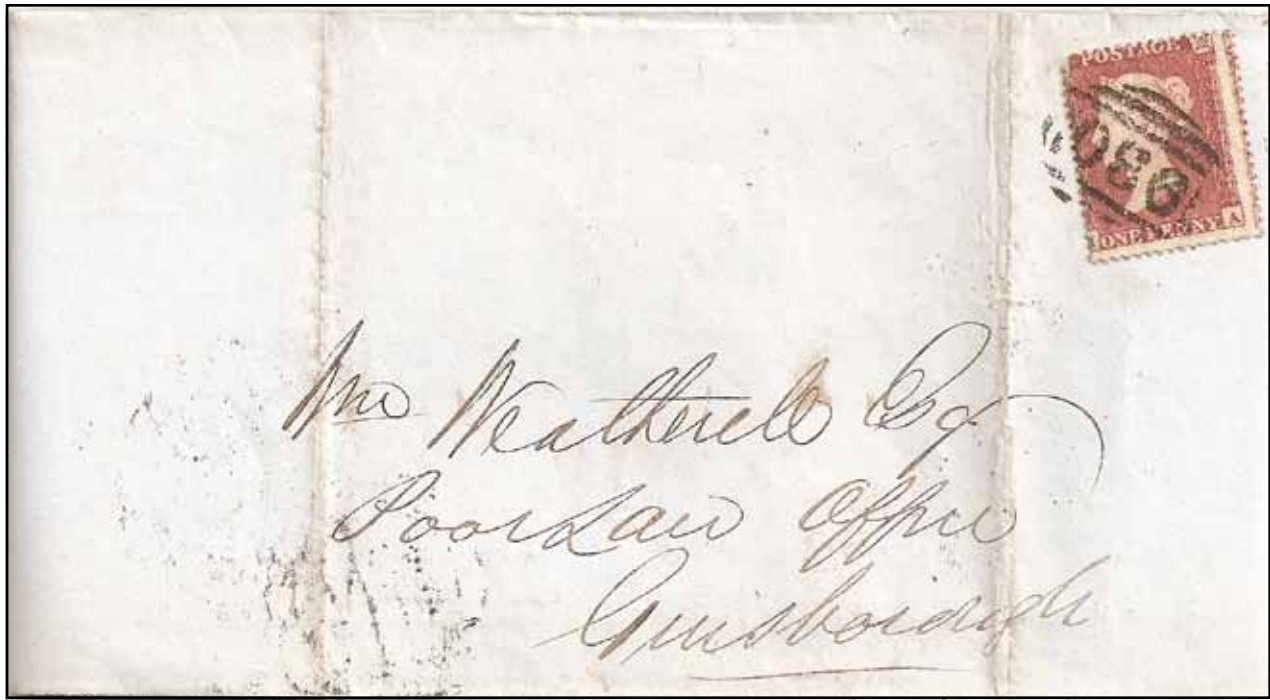 POSTAGE
ONE PENNY A
Weatherell Esq
Poor Law Office
Guisborough